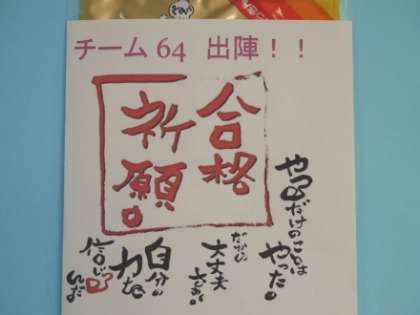 チーム64 出陣！！
合格
祈願。
やるだけのことは
やった。
だから
大丈夫
さぁ
自分の
力を
信じて